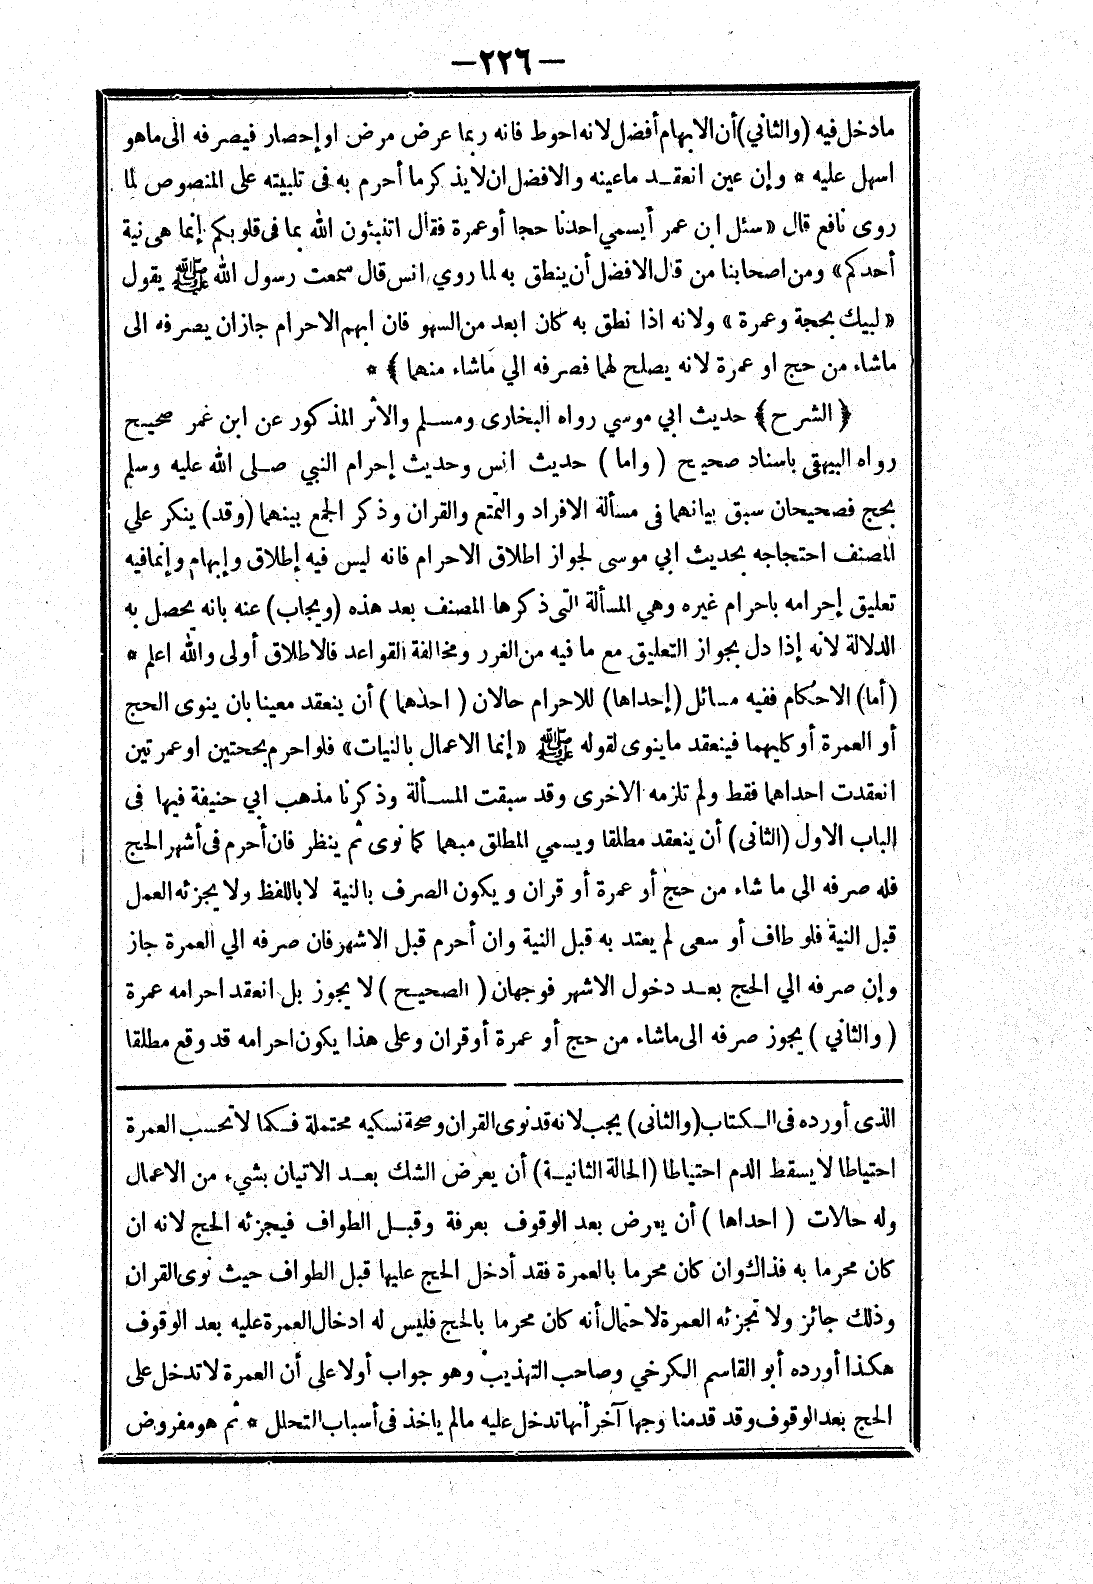 —٢٢٦—
مادخل فيه (والثاني) أن الابهام أفضل لانه احوط فانه ربما عرض مرض او إحصار فيصرفه الى ماهو
اسهل عليه * وإن عين انعقد ماعينه والافضل ان لا يذكر ما أحرم به فى تلبيته على المنصوص لما
روى نافع قال «سئل ابن عمر أيسمي احدنا حجا أو عمرة فقال اتنبئون الله بما فى قلوبكم إنما هى نية
أحدكم» ومن اصحابنا من قال الافضل أن ينطق به لما روي انس قال سمعت رسول الله ﷺ يقول
«لبيك بحجة وعمرة» ولانه اذا نطق به كان ابعد من السهو فان ابهم الاحرام جاز ان يصرفه الى
ماشاء من حج او عمرة لانه يصلح لهما فصرفه الي ماشاء منهما ﴾ *
﴿ الشرح ﴾ حديث ابي موسي رواه البخارى ومسلم والاثر المذكور عن ابن عمر صحيح
رواه البيهقى باسناد صحيح ( واما ) حديث انس وحديث إحرام النبي صلى الله عليه وسلم
بحج فصحيحان سبق بيانهما فى مسألة الافراد والتمتع والقران وذكر الجمع بينهما (وقد) ينكر علي
المصنف احتجاجه بحديث ابي موسى لجواز اطلاق الاحرام فانه ليس فيه إطلاق وإبهام وإنما فيه
تعليق إحرامه باحرام غيره وهي المسألة التى ذكرها المصنف بعد هذه (ويجاب) عنه بانه يحصل به
الدلالة لانه إذا دل بجواز التعليق مع ما فيه من الغرر ومخالفة القواعد فالاطلاق أولى والله اعلم *
(أما) الاحكام ففيه مسائل (إحداها) للاحرام حالان ( احدهما ) أن ينعقد معينا بان ينوى الحج
أو العمرة أو كليهما فينعقد ماينوى لقوله ﷺ «إنما الاعمال بالنيات» فلو احرم بحجتين او عمرتين
انعقدت احداهما فقط ولم تلزمه الاخرى وقد سبقت المسألة وذكرنا مذهب ابي حنيفة فيها فى
الباب الاول (الثانى) أن ينعقد مطلقا ويسمي المطلق مبهما كما نوى ثم ينظر فان أحرم فى أشهر الحج
فله صرفه الى ما شاء من حج أو عمرة أو قران ويكون الصرف بالنية لا باللفظ ولا يجزئه العمل
قبل النية فلو طاف أو سعى لم يعتد به قبل النية وان أحرم قبل الاشهر فان صرفه الي العمرة جاز
وإن صرفه الي الحج بعد دخول الاشهر فوجهان ( الصحيح ) لا يجوز بل انعقد احرامه عمرة
( والثاني ) يجوز صرفه الى ماشاء من حج أو عمرة أو قران وعلى هذا يكون احرامه قد وقع مطلقا
الذى أورده فى الكتاب (والثانى) يجب لانه قد نوى القران وصحة نسكيه محتملة فكما لا تحسب العمرة
احتياطا لا يسقط الدم احتياطا (الحالة الثانية) أن يعرض الشك بعد الاتيان بشيء من الاعمال
وله حالات ( احداها ) أن يعرض بعد الوقوف بعرفة وقبل الطواف فيجزئه الحج لانه ان
كان محرما به فذاك وان كان محرما بالعمرة فقد أدخل الحج عليها قبل الطواف حيث نوى القران
وذلك جائز ولا تجزئه العمرة لاحتمال أنه كان محرما بالحج فليس له ادخال العمرة عليه بعد الوقوف
هكذا أورده أبو القاسم الكرخي وصاحب التهذيب وهو جواب أولا على أن العمرة لا تدخل على
الحج بعد الوقوف وقد قدمنا وجها آخر أنها تدخل عليه مالم ياخذ فى أسباب التحلل * ثم هو مفروض